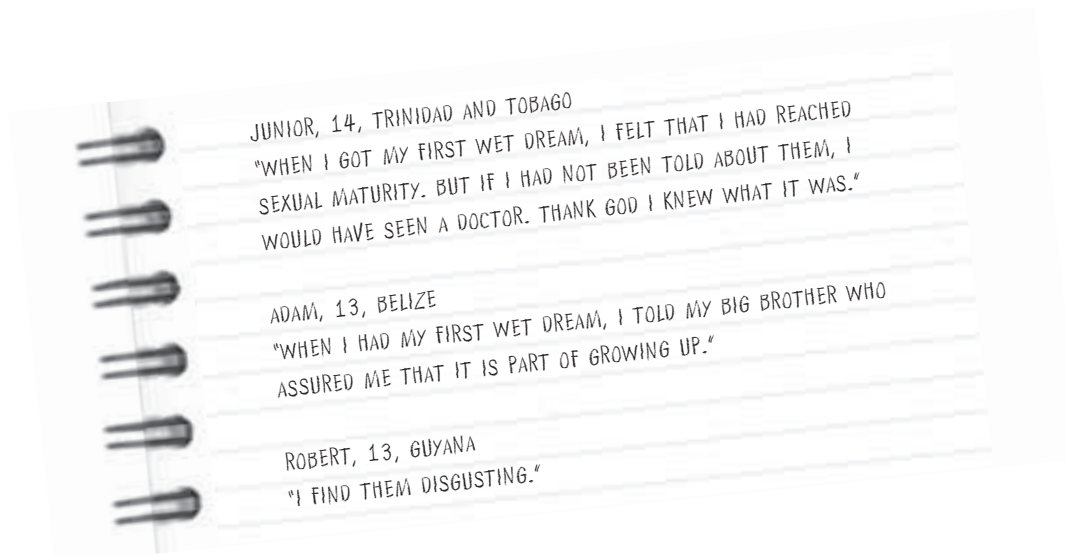 JUNIOR, 14, TRINIDAD AND TOBAGO
"WHEN I GOT MY FIRST WET DREAM, I FELT THAT I HAD REACHED
SEXUAL MATURITY. BUT IF I HAD NOT BEEN TOLD ABOUT THEM, I
WOULD HAVE SEEN A DOCTOR. THANK GOD I KNEW WHAT IT WAS."
ADAM, 13, BELIZE
"WHEN I HAD MY FIRST WET DREAM, I TOLD MY BIG BROTHER WHO
ASSURED ME THAT IT IS PART OF GROWING UP."
ROBERT, 13, GUYANA
"I FIND THEM DISGUSTING."